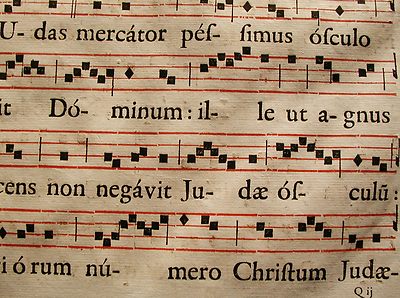 U- das mercátor péſ- ſimus óſculo
it Dó- minum: il- le ut a-gnus
cens non negávit Ju- dæ óſ- culū:
i ó rum nú- mero Chriſtum Judæ-
Q ij